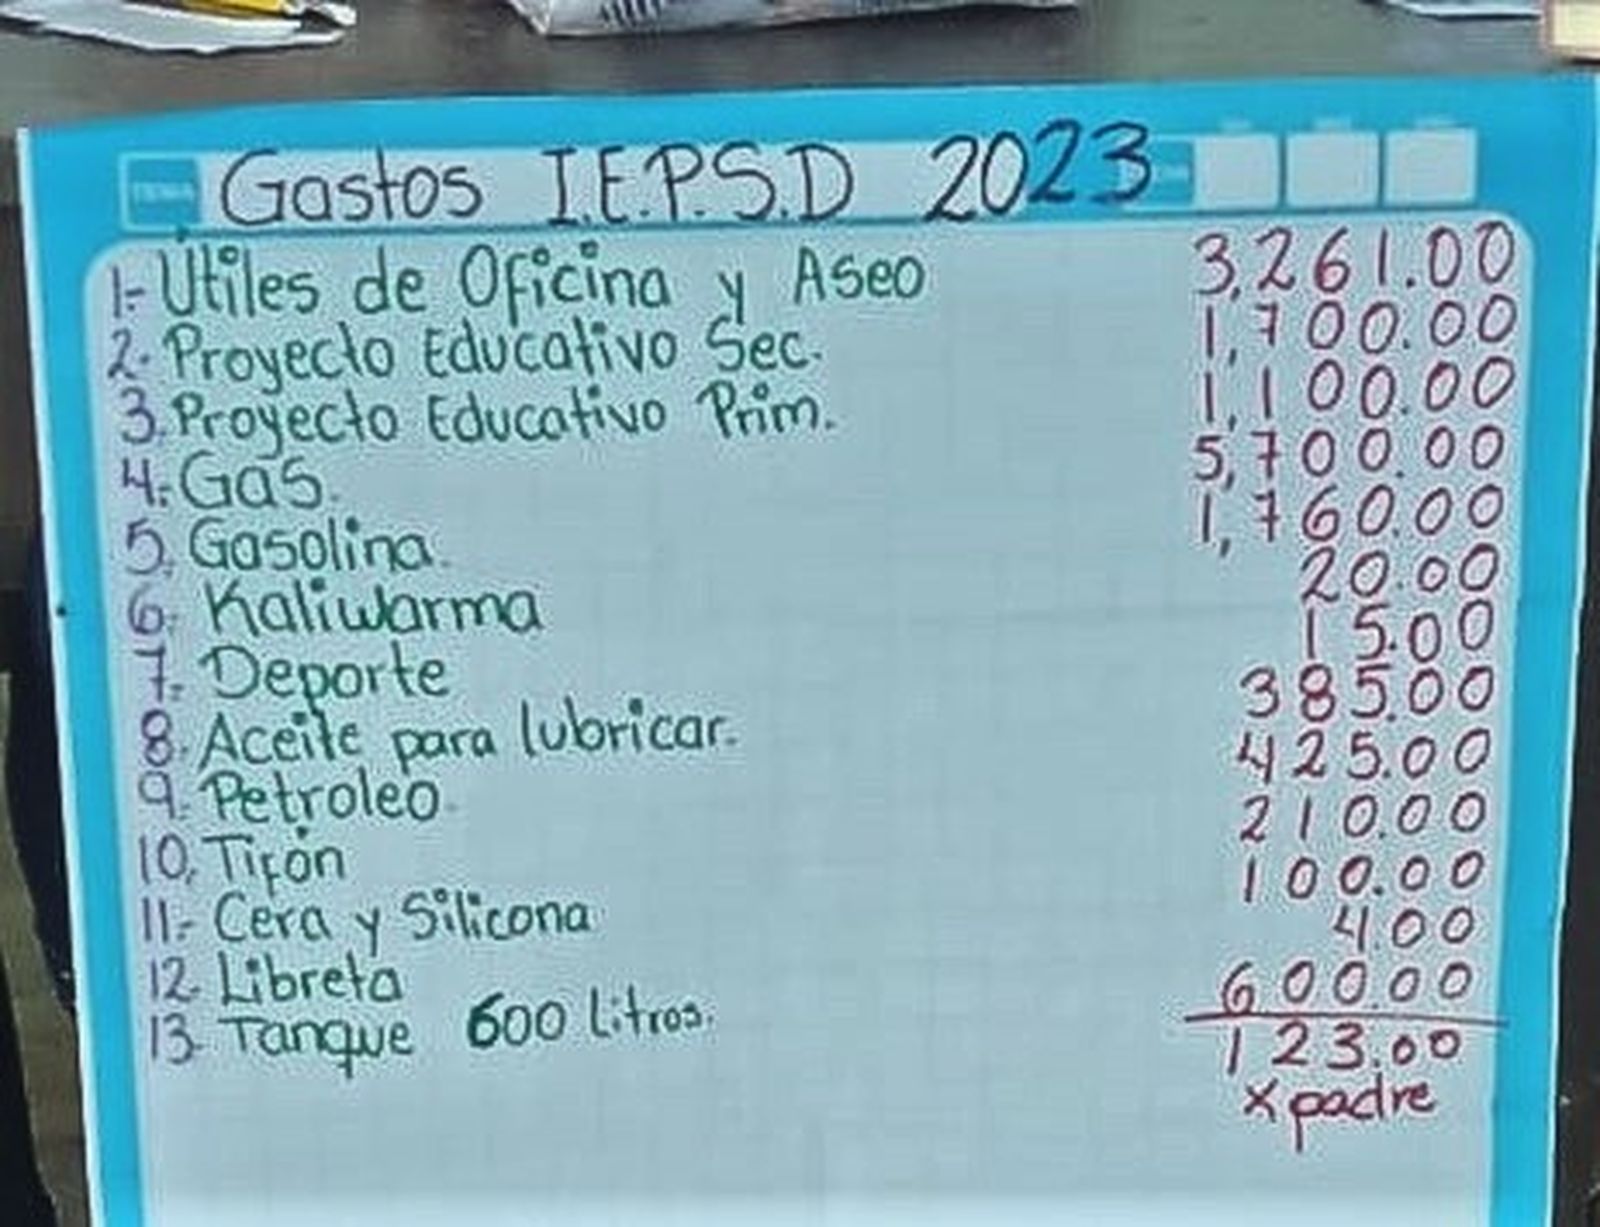 Gastos I.E.P.S.D 2023
1.- Útiles de Oficina y Aseo 3,261.00
2. Proyecto Educativo Sec. 1,700.00
3. Proyecto Educativo Prim. 1,100.00
4.- Gas. 5,700.00
5. Gasolina. 1,760.00
6. Kaliwarma 20.00
7. Deporte 15.00
8. Aceite para lubricar. 385.00
9. Petroleo 425.00
10. Tifón 210.00
11.- Cera y Silicona 100.00
12. Libreta 4.00
13. Tanque 600 litros. 600.00
123.00
x padre